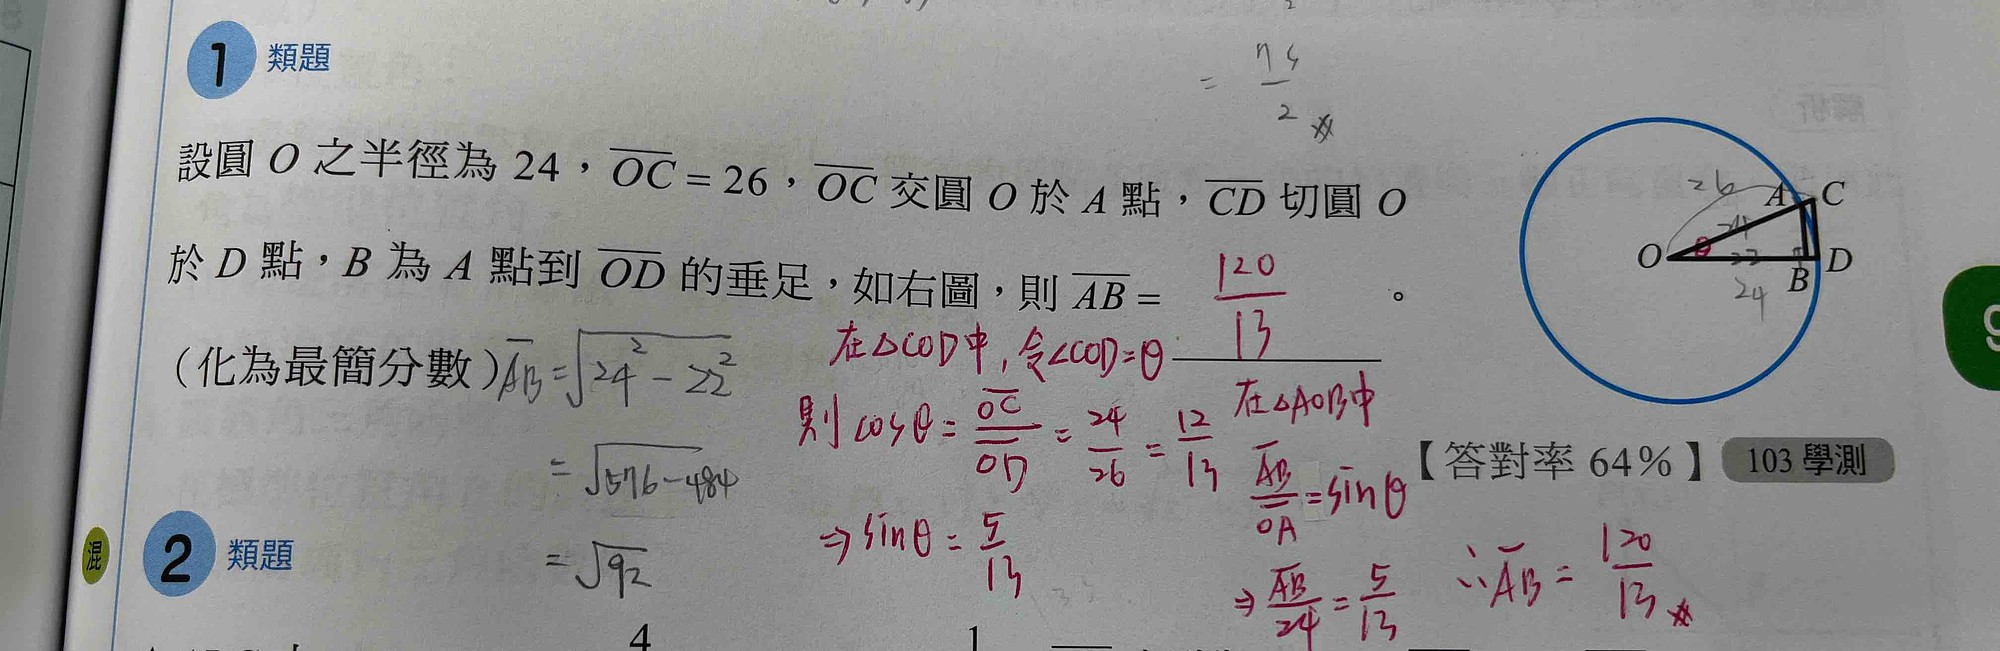 = 75/2 ※
1 類題
設圓 O 之半徑為 24,OC = 26,OC 交圓 O 於 A 點,CD 切圓 O
於 D 點,B 為 A 點到 OD 的垂足,如右圖,則 AB = 120/13 。
(化為最簡分數)
AB = √24² - 22²
= √576-484
= √92
在△COD中,令∠COD=θ
則 cosθ = OC/OD = 24/26 = 12/13
⇒ sinθ = 5/13
在△AOB中
AB/OA = sinθ
⇒ AB/24 = 5/13
∴ AB = 120/13 ※
26
A C
24
O θ 22 B D
24
【答對率 64%】 103 學測
混 2 類題
4 1
9